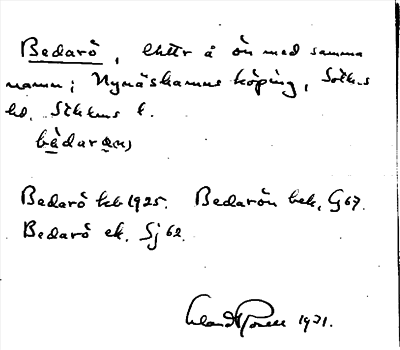 Bedarö, lhttr å ön med samma
namn; Nynäshamns köping, Sotholms
hd, Sthlms l.
bèdaren)
Bedarö kb 1925. Bedarön bek. Gj 67.
Bedarö ek. Sj 62.
1931.